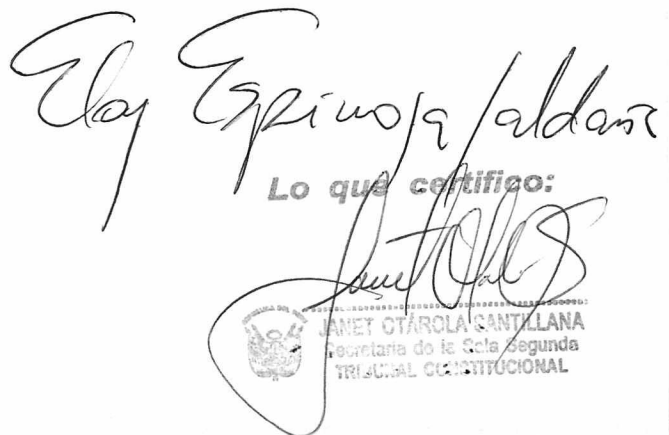 Eloy Espinosa Saldaña
Lo que certifico:
JANET OTÁROLA SANTILLANA
Secretaria de la Sala Segunda
TRIBUNAL CONSTITUCIONAL